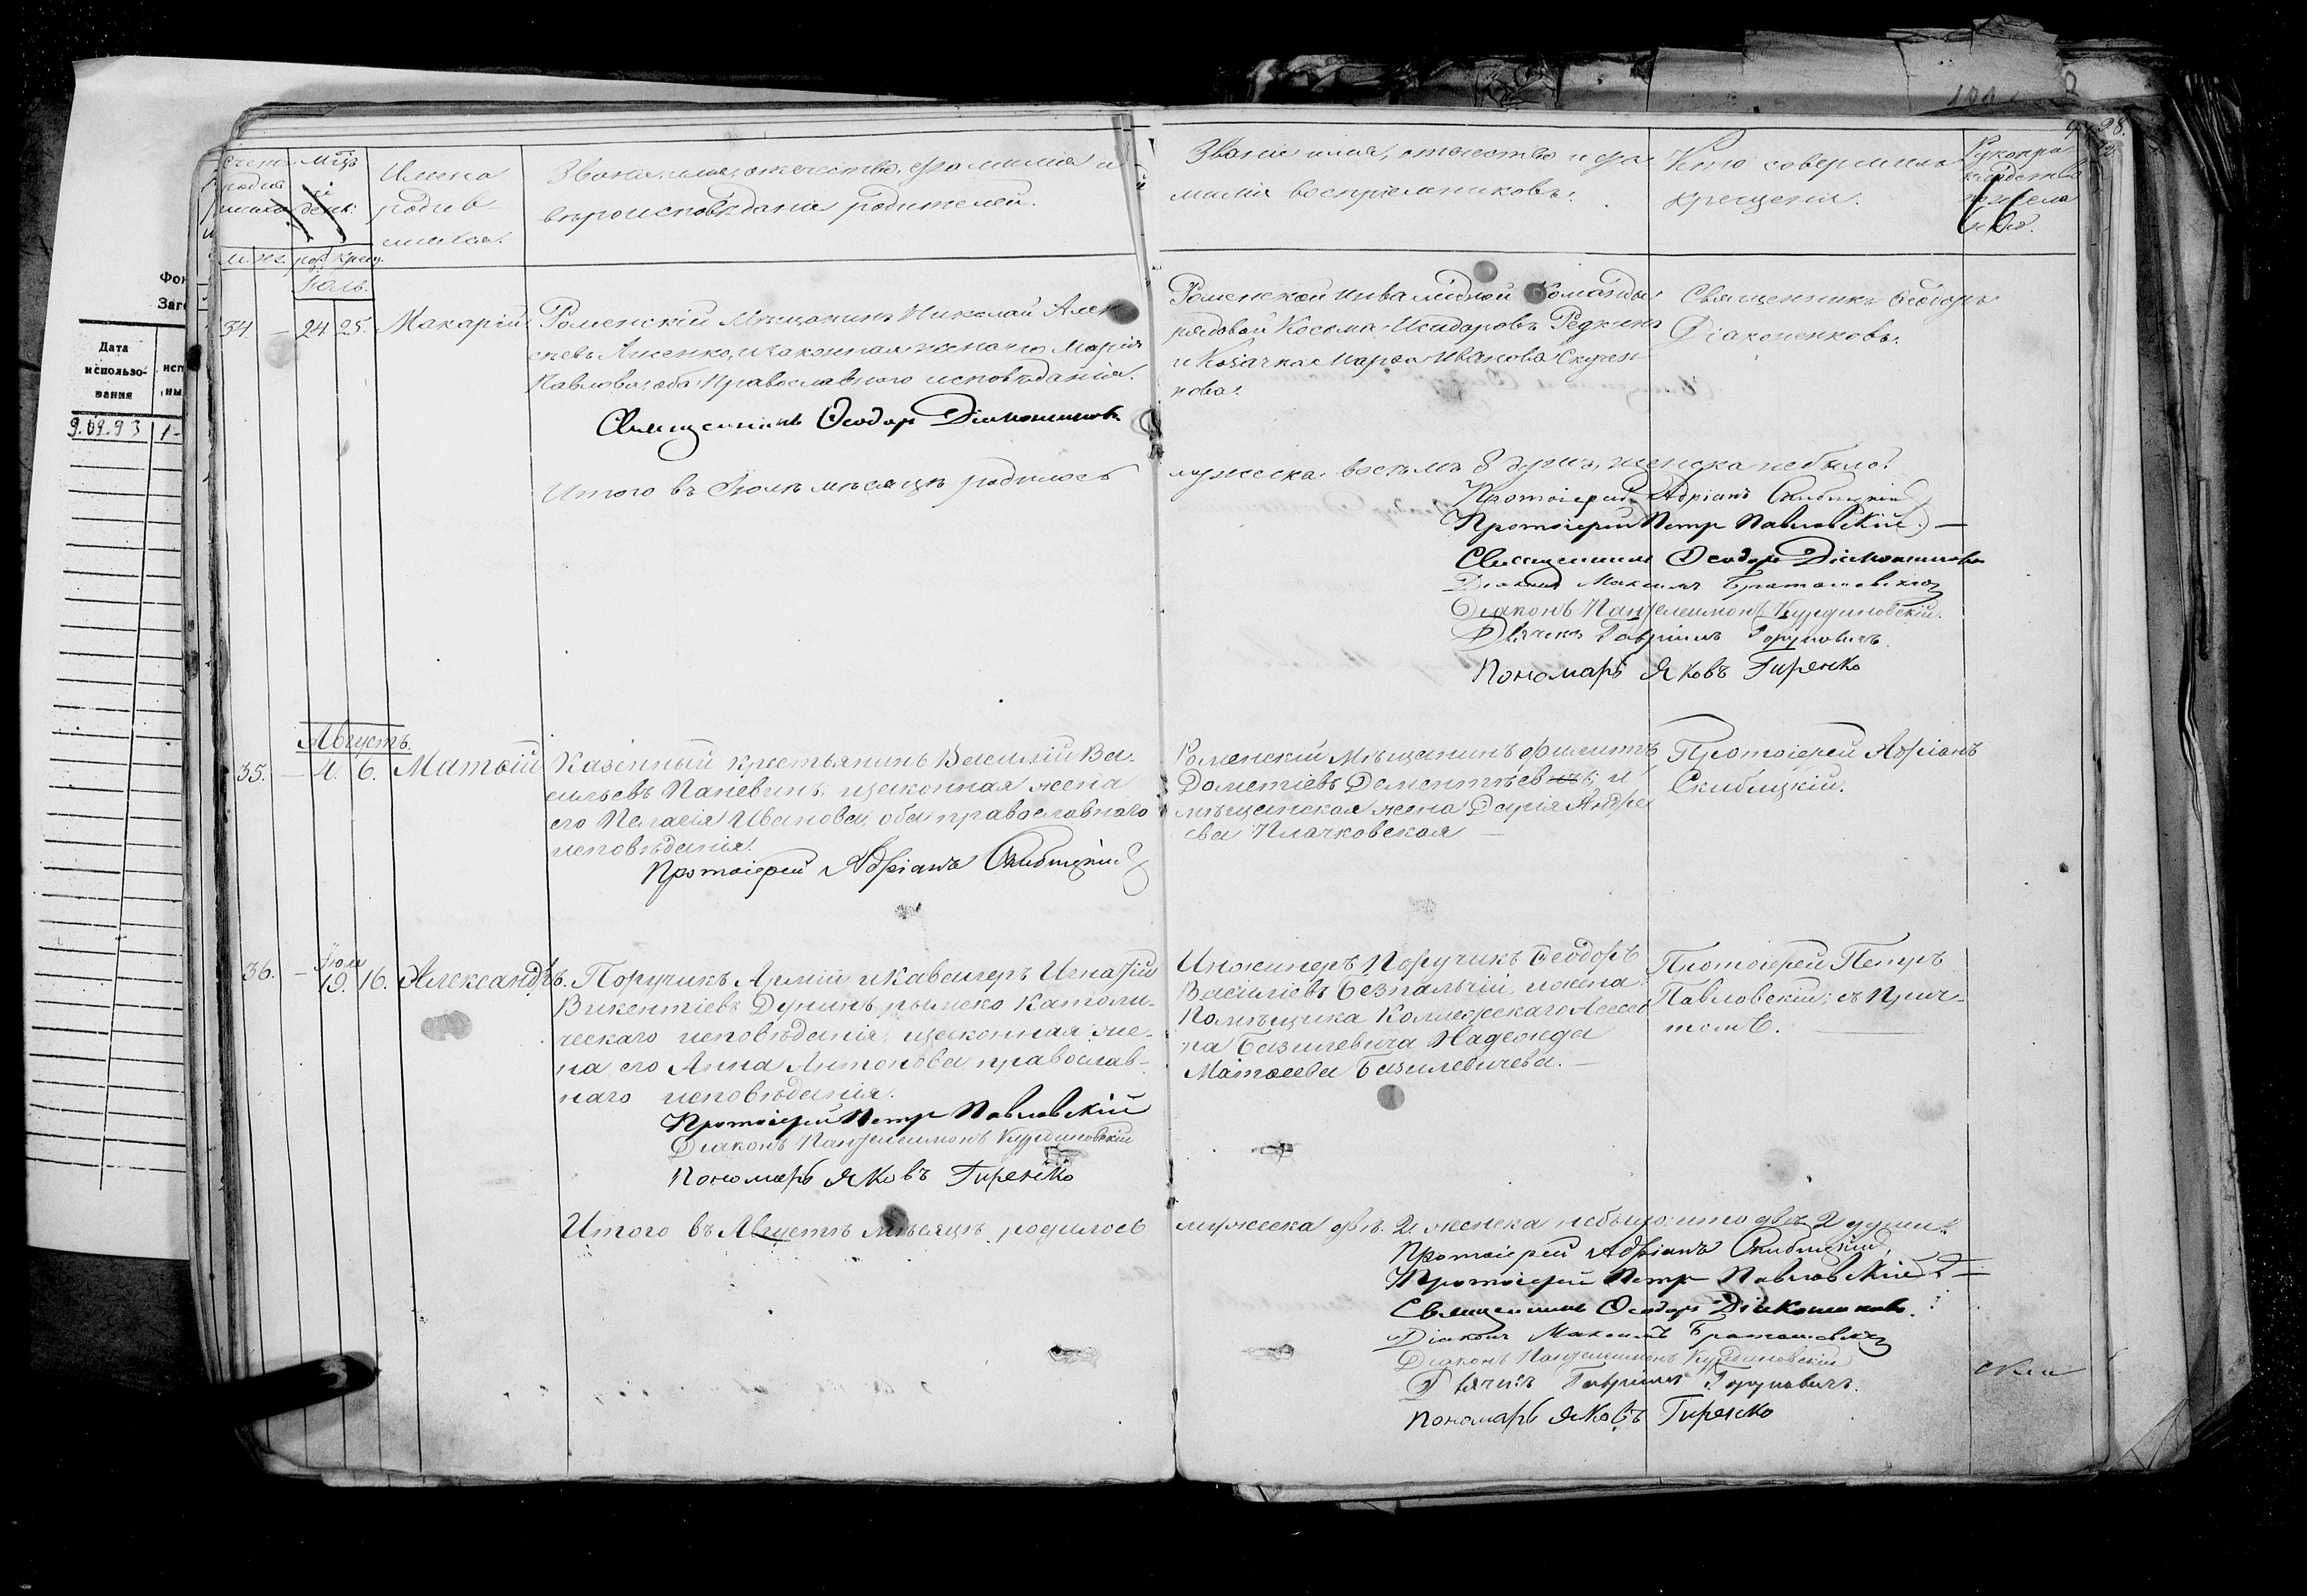 Фон
Заго
Дата
использо-
вания
исп
ны
9.09.93
1-
Счетъ
родив
Мцъ
и
день.
м. ж.
рож. крещ.
Имена
родив
шихся.
Званіе, имя, отечество, фамилія и
вѣроисповѣданіе родителей.
Званіе имя, отечество и фа
милія воспріемниковъ.
Кто совершилъ
крещеніе.
Рукопри
кладство
28.
Іюль.
34. — 24. 25. Макарій
Роменскій Мѣщанинъ Николай Алек
сѣевъ Лисенко, и законная жена его Марія
Павлова, оба Православнаго исповѣданія.
Священникъ Ѳеодоръ Діаконенковъ
Роменской инвалидной Команды
рядовой Косма Исидоровъ Редкинъ
и Козачка Марѳа Иванова
нова.
Священникъ Ѳеодоръ
Діаконенковъ.
Итого въ Іюлѣ мѣсяцѣ родилось
мужеска восемъ 8 душъ, женска небыло.
Протоіерей Адріанъ Скибицкій
Протоіерей Петръ Павловскій
Священникъ Ѳеодоръ Діаконенковъ
Діаконъ Максимъ
Діаконъ Пантелеимонъ Курдиновскій.
Дьячекъ Гавріилъ
Пономарь Яковъ Гиренко
Августъ.
35. — 4. 6. Матѳій
Казенный крестьянинъ Василій Ва-
сильевъ Паневинъ, и законная жена
его Пелагія Иванова, оба православнаго
исповѣданія.
Протоіерей Адріанъ Скибицкій
Роменскій Мѣщанинъ
Дометіевъ Дементѣев и
мѣщанская жена Дарія Андре
ева Плачковская —
Протоіерей Адріанъ
Скибицкій.
36. — Іюля 19. 16. Александръ.
Поручикъ Арміи и Кавалеръ Игнатій
Викентіевъ Дунинъ, рымско Католи-
ческаго исповѣданія, и законная же-
на его Анна Антонова, православ-
наго исповѣданія.
Протоіерей Петръ Павловскій
Діаконъ Пантелеимонъ Курдиновскій
Пономарь Яковъ Гиренко
Инжинеръ Поручикъ Ѳеодоръ
Василіевъ Безпальчій, и жена
Помѣщика Коллежскаго Ассесо
ра Базилевича Надежда
Матѳеева Базилевичева. —
Протоіерей Петръ
Павловскій; съ Прич-
томъ.
Итого въ Августѣ мѣсяцѣ родилось
мужеска 2. женска небыло; итого двѣ 2 души.
Протоіерей Адріанъ Скибицкій,
Протоіерей Петръ Павловскій
Священникъ Ѳеодоръ Діаконенковъ.
Діаконъ Максимъ
Діаконъ Пантелеимонъ Курдиновскій
Дьячекъ Гавріилъ
Пономарь Яковъ Гиренко